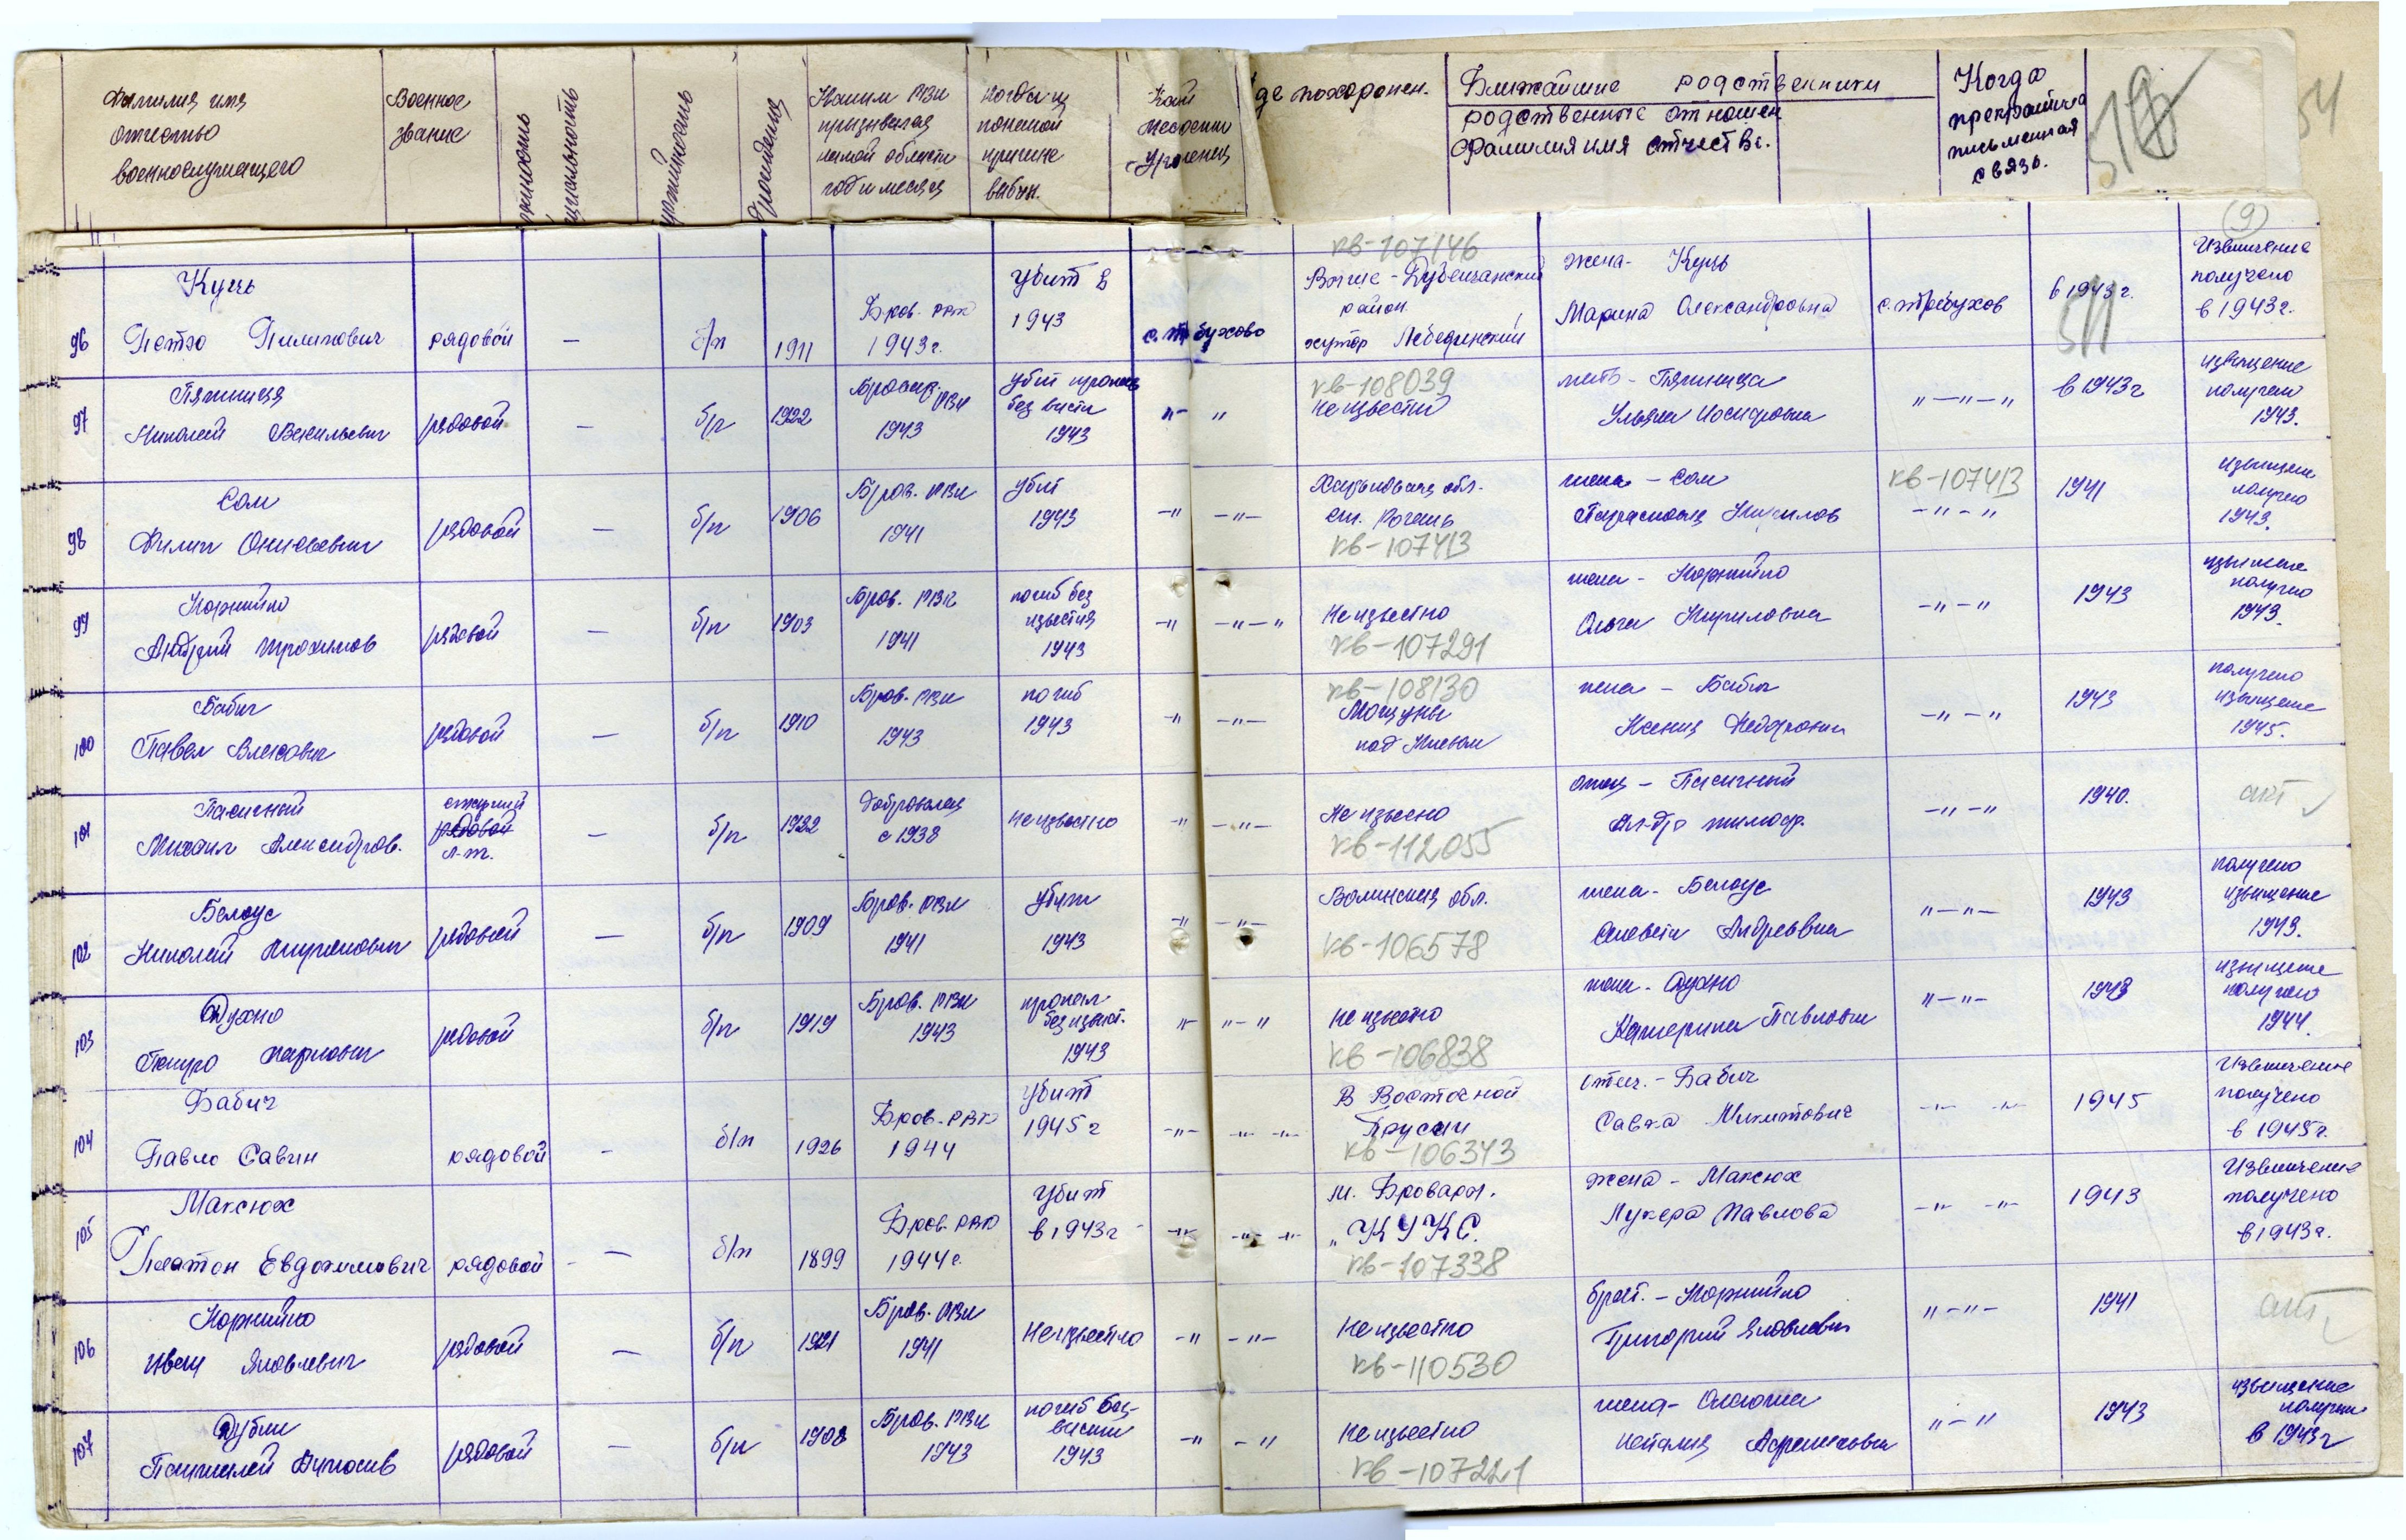 Фамилия имя
отчество
военнослужащего
Военное
звание
партийность
рождения
Каким РВК
призывался
какой области
год и месяц
когда и
по какой
причине
выбыл.
уроженец
где похоронен.
Ближайшие родственники
родственные отношен
фамилия имя отчество.
Когда
прекратилась
письменная
связь.
54
9
96
Куць
Петро Пилипович
рядовой
—
б/п
1911
Бров. РВК
1943г.
Убит в
1943
с. Требухово
кв-107146
Высше-Дубечанский
район.
хутор Лебединский
жена- Куць
Марина Олександровна
с. Требухов
в 1943г.
511
Извещение
получено
в 1943г.
97
Пятниця
Николай Васильевич
рядовой
—
б/п
1922
Бровар. РВК
1943
убит пропав
без вести
1943
" — "
кв-108039
неизвестно
мать - Пятница
Ульяна Иосифовна
" — " — "
в 1943г
извещение
получено
1943.
98
Сом
Филип
рядовой
—
б/п
1906
Бров. РВК
1941
убит
1943
— " — " —
Харьковская обл.
ст. Рогань
кв-107413
жена - Сом
Парасковья
кв-107413
— " — "
1941
извещение
получено
1943.
99
Корнийко
Андрей Трохимов
рядовой
—
б/п
1903
Бров. РВК
1941
погиб без
известия
1943
— " — " — "
Неизвестно
кв-107291
жена - Корнийко
Ольга Кириловна
— " — "
1943
извещение
получено
1943.
100
Бабич
Павел
рядовой
—
б/п
1910
Бров. РВК
1943
погиб
1943
— " — " —
кв-108130
Мощуны
под Киевом
жена - Бабич
Ксения Федоровна
— " — "
1943
получено
извещение
1945.
101
Пасичный
Михаил Александров.
рядовой
л-т.
—
б/п
1922
Доброволец
с 1938
неизвестно
— " — " —
Не извесно
кв-112055
отец - Пасичный
Ал-др Тимофе.
— " — "
1940.
акт
102
Белоус
Николай
рядовой
—
б/п
1909
Бров. РВК
1941
убит
1943
— " — " —
Волинская обл.
кв-106578
жена - Белоус
Андреевна
" — " —
1943
получено
извещение
1943.
103
Духно
Петро Карпович
рядовой
б/п
1919
Бров. РВК
1943
пропал
без извест.
1943
" — " — "
неизвестно
кв-106838
жена - Духно
Катерина Павловна
" — " —
1943
извещение
получено
1944.
104
Бабич
Павло Савич
рядовой
-
б/п
1926
Бров. РВК
1944
Убит
1945г
— " — " — " —
В Восточной
Прусии
кв-106343
отец. - Бабич
Савка Микитович
— " — " —
1945
Извещение
получено
в 1945г.
105
Максюх
Платон Евдокимович
рядовой
—
б/п
1899
Бров. РВК
1944г.
Убит
в 1943г
— " — " — " —
м. Бровари.
кв-107338
жена - Максюх
Лукера Павлова
— " — " —
1943
Извещение
получено
в 1943г.
106
Корнийко
Иван Яковлевич
рядовой
—
б/п
1921
Бров. РВК
1941
Неизвестно
— " — " —
Неизвестно
кв-110530
брат. - Корнийко
Григорий Яковлевич
" — " —
1941
акт
107
рядовой
—
б/п
1908
Бров. РВК
1943
погиб без
вести
1943
— " — "
Неизвестно
кв-107221
жена-
Наталия
" — "
1943
извещение
получен
в 1943г